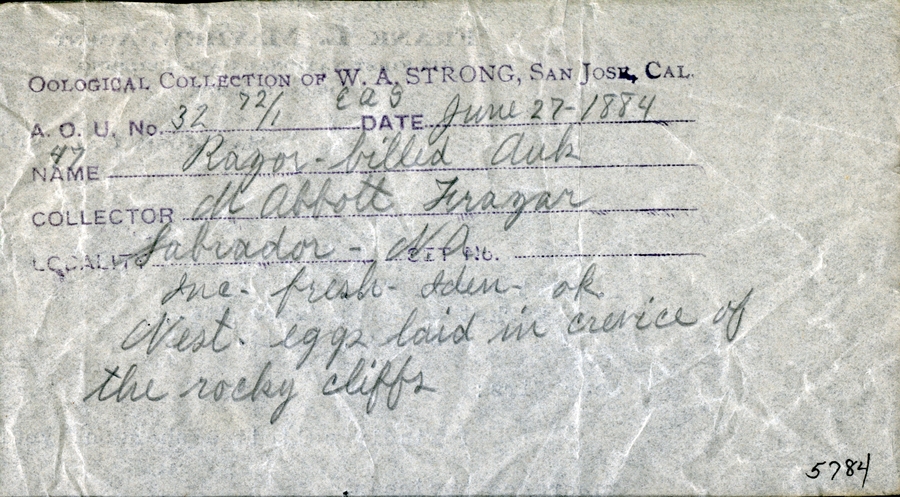 OOLOGICAL COLLECTION OF W. A. STRONG, SAN JOSE, CAL.
A. O. U. No. 32 72/1 EAS DATE June 27-1884
47
NAME Razor-billed Auk
COLLECTOR M Abbott Frazar
LOCALITY Labrador - NA SET No.
Inc- fresh- Iden- ok
Nest. eggs laid in crevice of
the rocky cliffs
5784